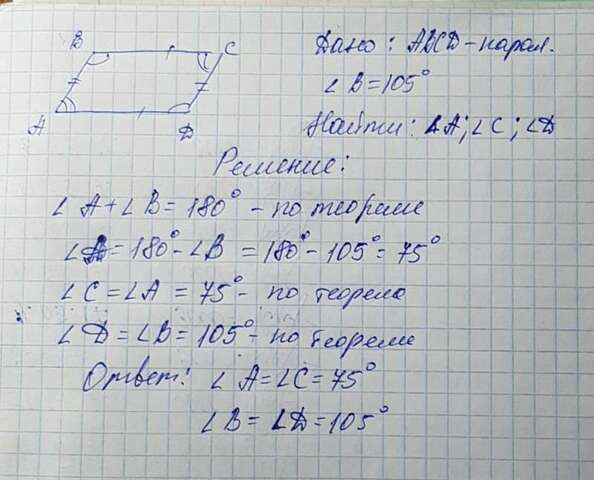 B C
A D
Дано: ABCD - парал.
∠ B = 105°
Найти: ∠A; ∠C; ∠D
Решение:
∠ A + ∠ B = 180° - по теореме
∠A = 180° - ∠B = 180° - 105° = 75°
∠ C = ∠A = 75° - по теореме
∠ D = ∠B = 105° - по теореме
Ответ: ∠ A = ∠C = 75°
∠ B = ∠D = 105°